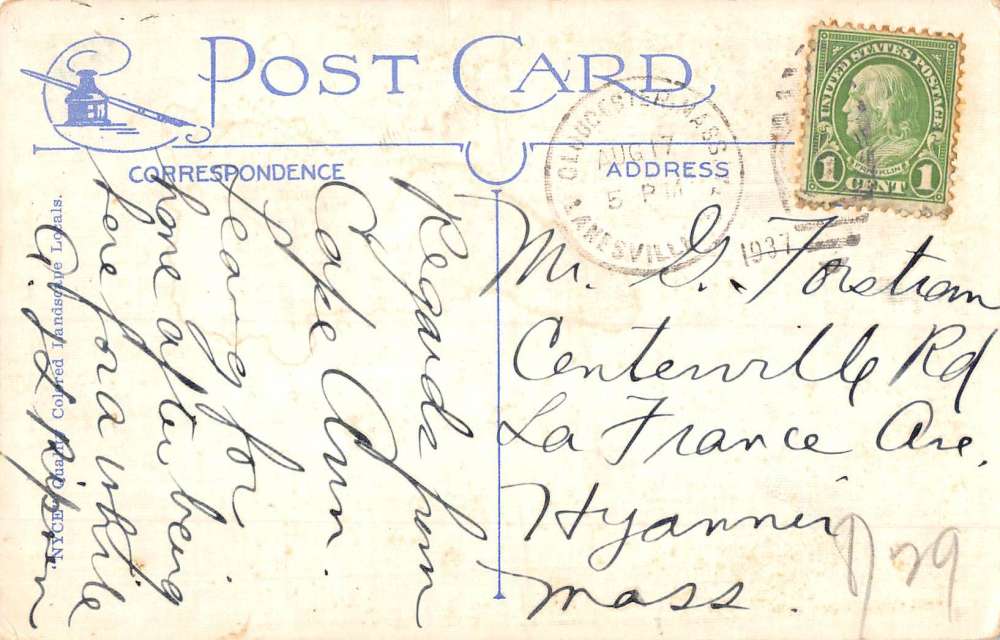 POST CARD
CORRESPONDENCE
ADDRESS
GLOUCESTER, MASS.
AUG 17
5 PM
LANESVILLE
1937
UNITED STATES POSTAGE
FRANKLIN
1 CENT 1
Regards from
Cape Ann.
Leaving for
home after being
here for a while
Mr. G. Forstram
Centerville Rd
La France Ave.
Hyannis
Mass.
"NYCE" Quality Colored Landscape Locals.